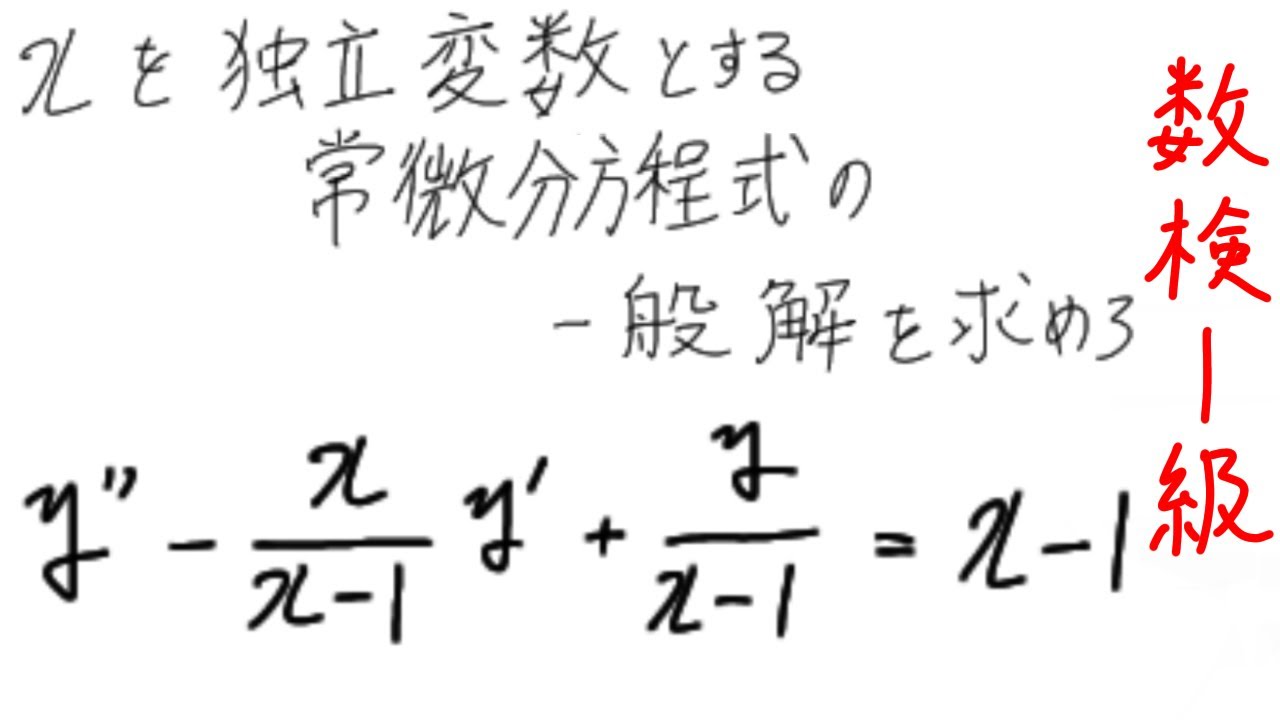 xを独立変数とする
常微分方程式の
一般解を求めろ
y'' - x/(x-1) y' + y/(x-1) = x-1
数検1級